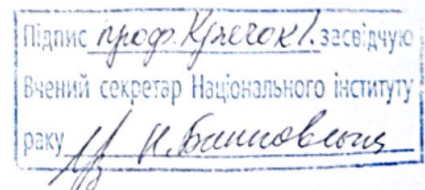 Підпис проф. Крячок І. засвідчую
Вчений секретар Національного інституту
раку